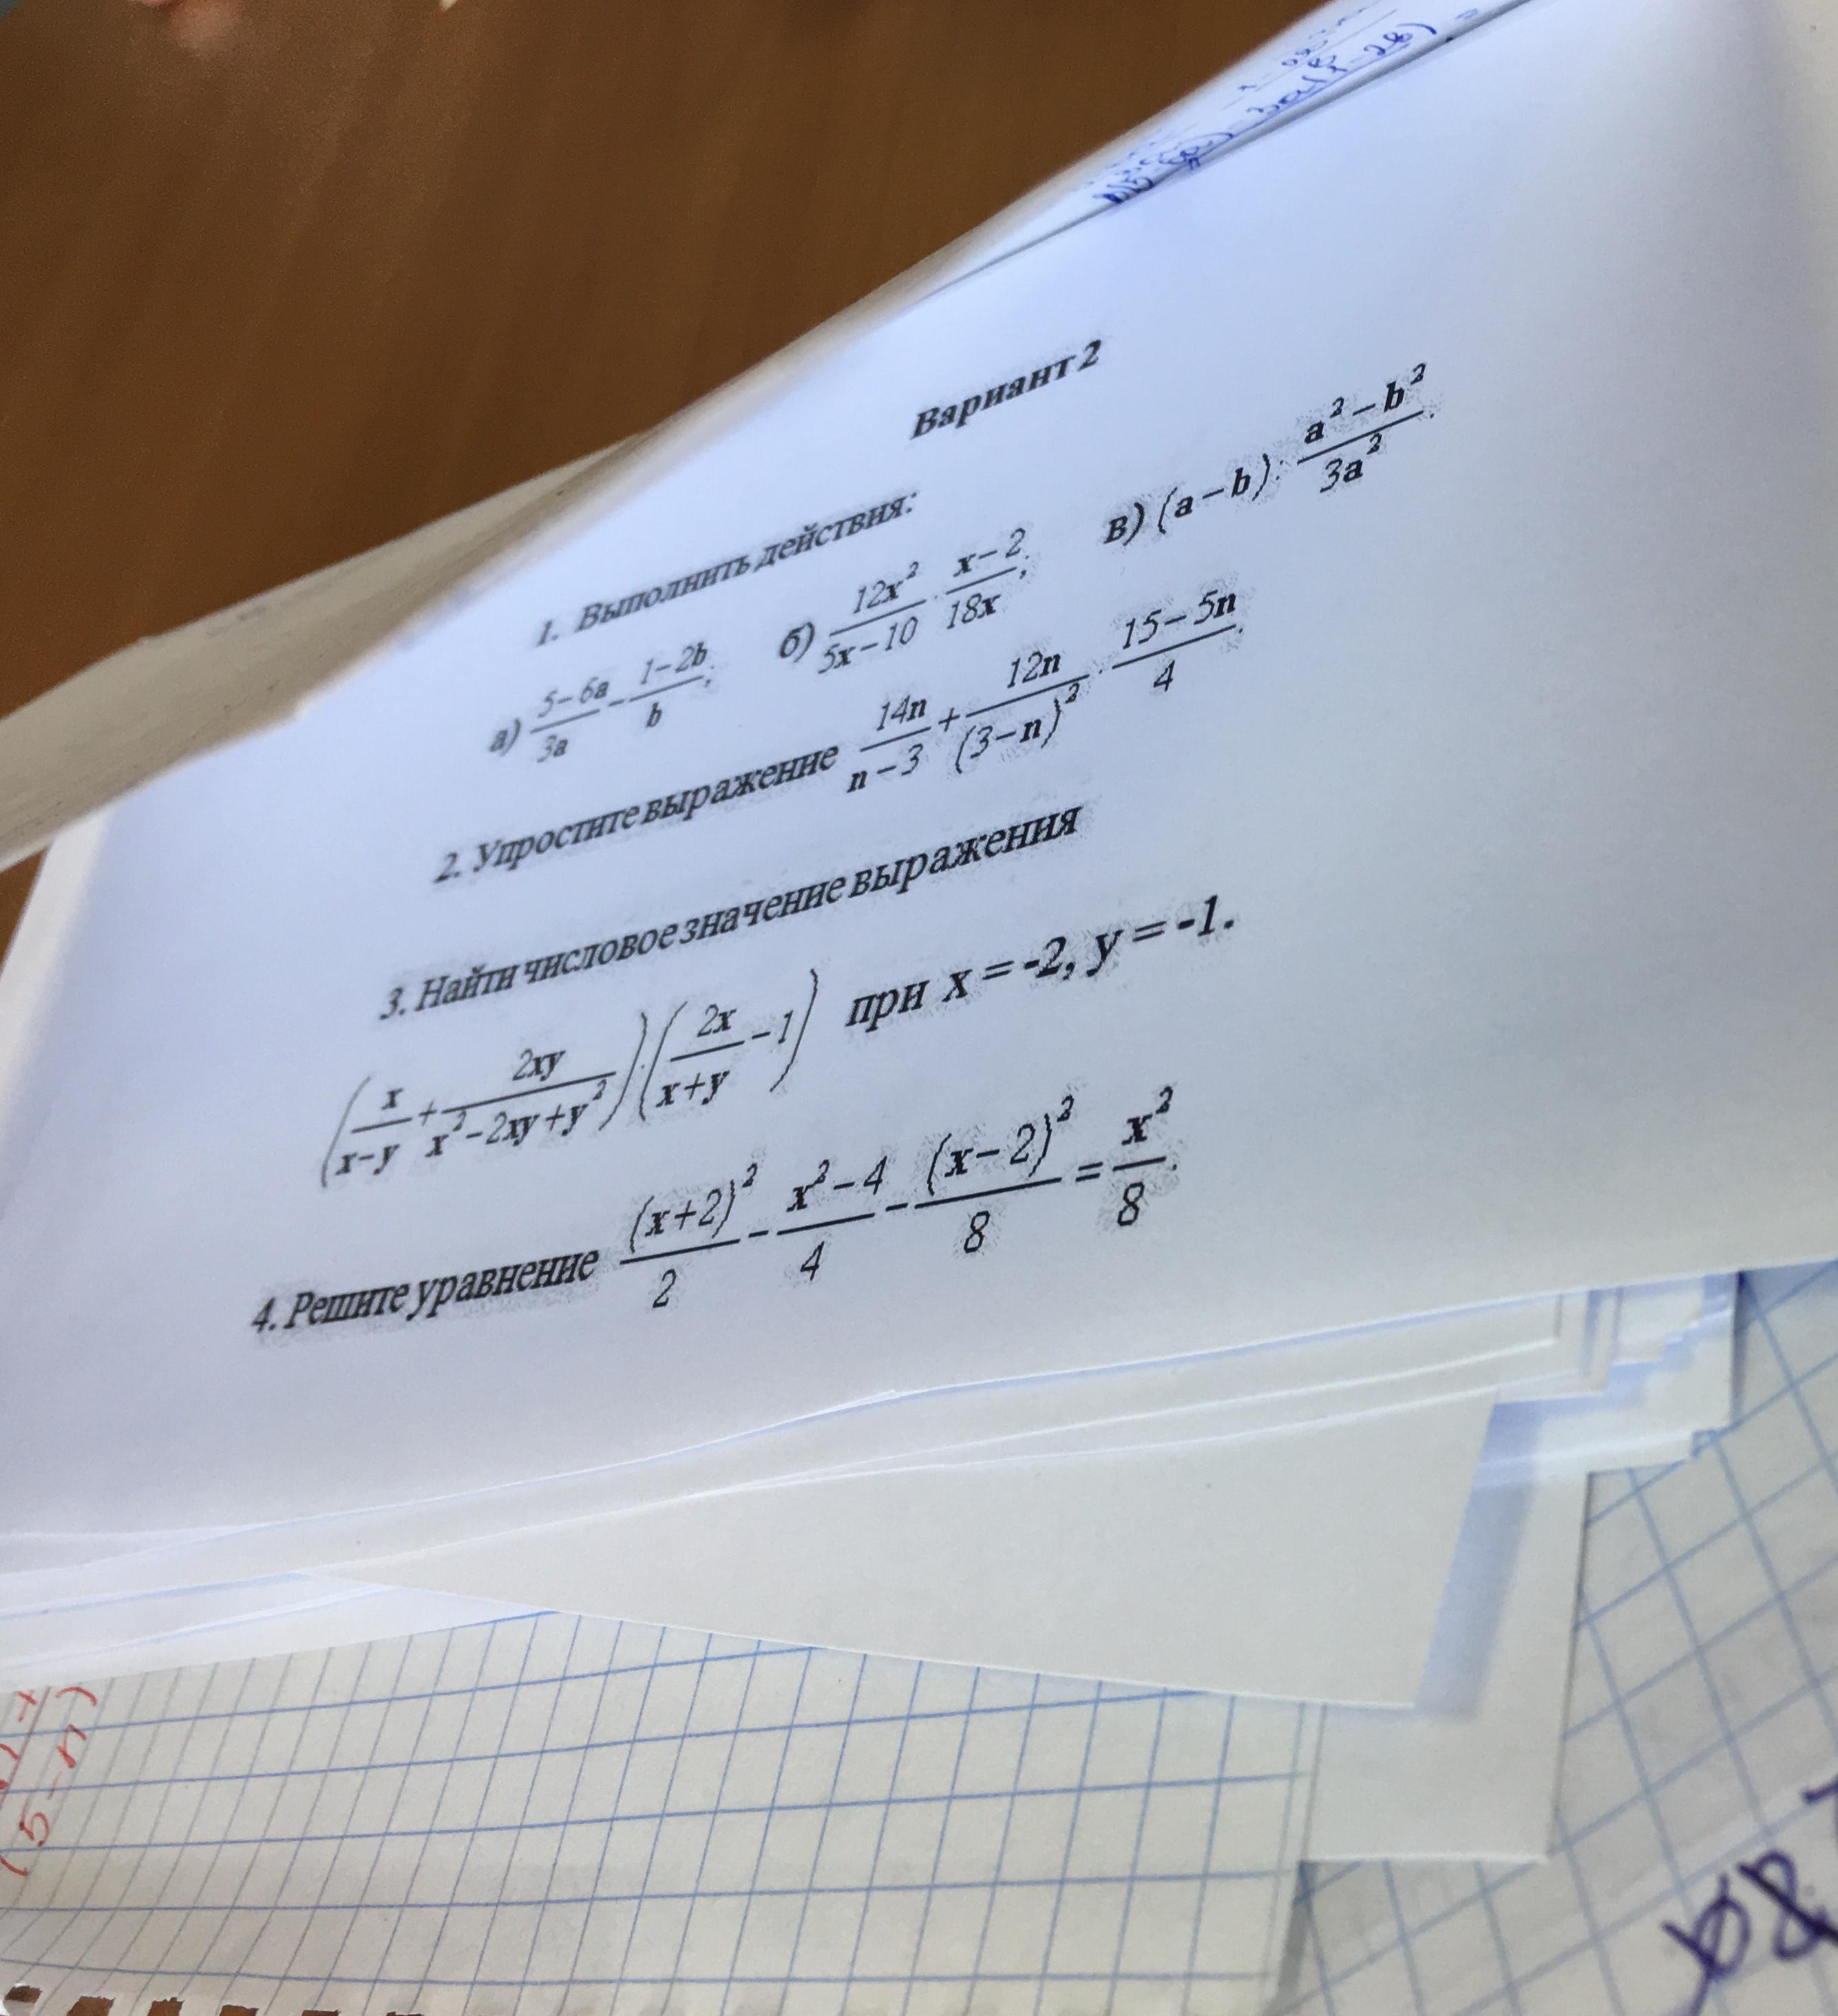 Вариант 2
1. Выполнить действия:
а) \frac{5-6a}{3a} - \frac{1-2b}{b}; б) \frac{12x^2}{5x-10} · \frac{x-2}{18x}; в) (a-b) : \frac{a^2-b^2}{3a^2}.
2. Упростите выражение \frac{14n}{n-3} + \frac{12n}{(3-n)^2} · \frac{15-5n}{4}.
3. Найти числовое значение выражения
(\frac{x}{x-y} + \frac{2xy}{x^2-2xy+y^2}) : (\frac{2x}{x+y} - 1) при x = -2, y = -1.
4. Решите уравнение \frac{(x+2)^2}{2} - \frac{x^2-4}{4} - \frac{(x-2)^2}{8} = \frac{x^2}{8}.
(5-n)